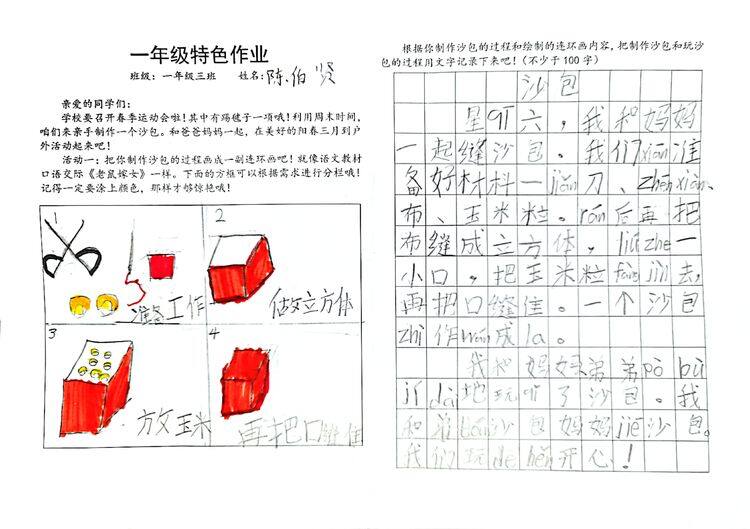 一年级特色作业
班级：一年级三班 姓名：陈伯贤
亲爱的同学们：
学校要召开春季运动会啦！其中有踢毽子一项哦！利用周末时间，
咱们来亲手制作一个沙包。和爸爸妈妈一起，在美好的阳春三月到户
外活动起来吧！
活动一：把你制作沙包的过程画成一副连环画吧！就像语文教材
口语交际《老鼠嫁女》一样。下面的方框可以根据需求进行分栏哦！
记得一定要涂上颜色，那样才够惊艳哦！
1
准备工作
2
做立方体
3
放玉米
4
再把口缝住
根据你制作沙包的过程和绘制的连环画内容，把制作沙包和玩沙
包的过程用文字记录下来吧！（不少于100字）
沙包
星qī六，我和妈妈
一起缝沙包。我们xiān准
备好材料一jiǎn刀、zhēn xiàn、
布、玉米粒。rán后再把
布缝成立方体，liú zhe一
小口。把玉米粒fàng jìn去，
再把口缝住。一个沙包
zhì作wán成la。
我和妈妈弟弟pò bù
jí dài地玩qǐ了沙包。我
和弟 沙包妈妈jiē沙包。
我们玩de hěn开心！